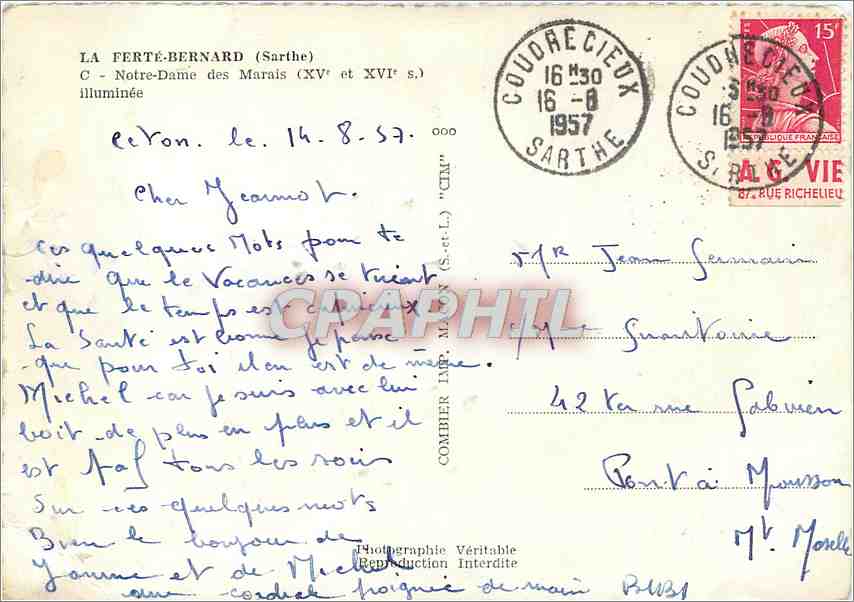 LA FERTÉ-BERNARD (Sarthe)
C - Notre-Dame des Marais (XVe et XVIe s.)
illuminée
le 14-8-57.
Cher
Ces quelques Mots pour te
dire que le Vacances se tirent
et que le temps est
La Santé est bonne je pense
que pour toi il en est de même.
Michel car je suis avec lui
boit de plus en plus et il
est paf tous les soirs
Sur ces quelques mots
Bien le bonjour de
Yonne et de Michel
une cordiale poignée de main
COMBIER IMP. MACON (S.-et-L.) "CIM"
Photographie Véritable
Reproduction Interdite
COUDRECIEUX
16 H 30
16 -8
1957
SARTHE
COUDRECIEUX
16 -8
1957
SARTHE
15F
REPUBLIQUE FRANÇAISE
A.G. VIE
87, RUE RICHELIEU
Mr Jean Germain
42 ter rue Gabriel
Pont à Mousson
Mt. Moselle
CPAPHIL